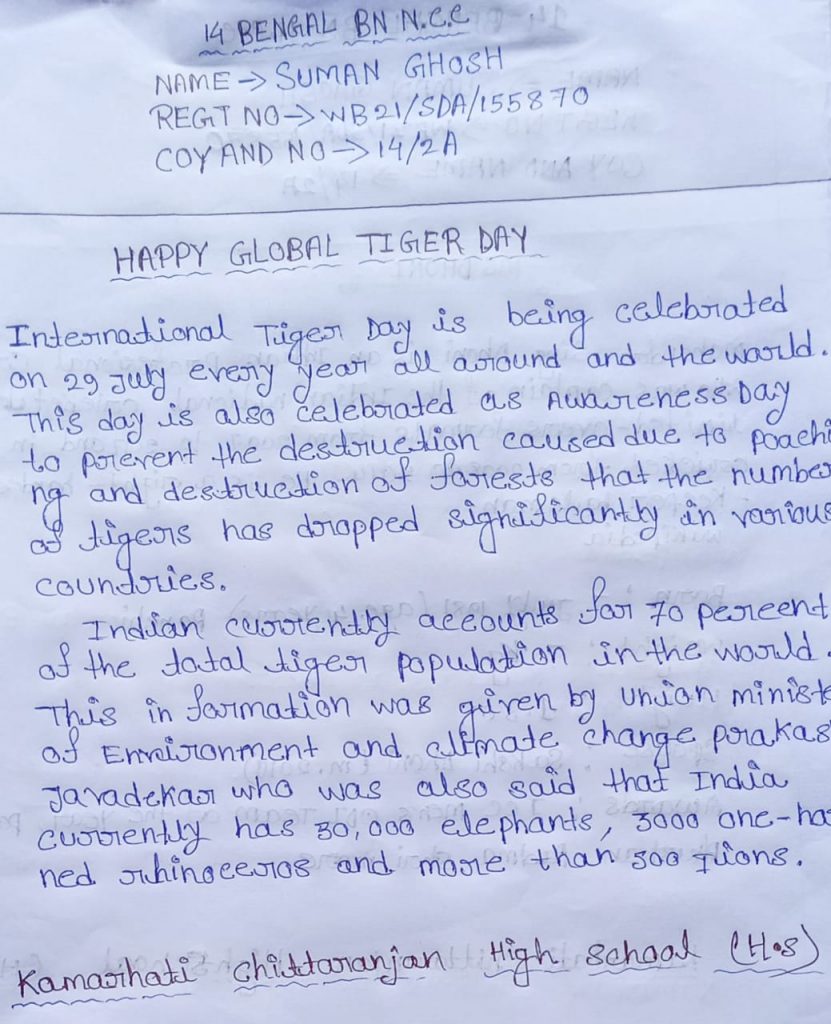 14 BENGAL BN N.C.C
NAME → SUMAN GHOSH
REGT NO → WB21/SDA/155870
COY AND NO → 14/2A
HAPPY GLOBAL TIGER DAY
International Tiger Day is being celebrated
on 29 July every year all around and the world.
This day is also celebrated as Awareness Day
to prevent the destruction caused due to poachi
ng and destruction of forests that the number
of tigers has dropped significantly in various
countries.
Indian currently accounts for 70 percent
of the total tiger population in the world.
This in formation was given by union ministe
of Environment and climate change prakas
Javadekar who was also said that India
currently has 30,000 elephants, 3000 one-ho
ned rhinoceros and more than 500 lions.
Kamarhati Chittaranjan High School (H.S)